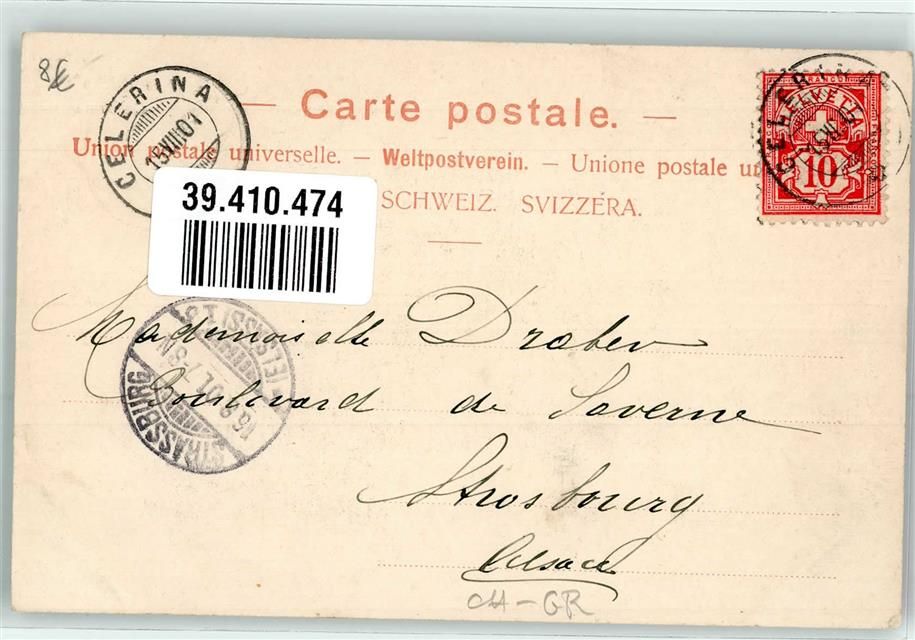 8€
CELERINA
15.VIII.01
Carte postale.
Union postale universelle. — Weltpostverein. — Unione postale un
SCHWEIZ. SVIZZERA.
FRANCO
HELVETIA
10
CELERINA
39.410.474
Mademoiselle Draber
Boulevard de Saverne
Strasbourg
Alsace
STRASSBURG (ELSASS)
16.8.01
CH-GR